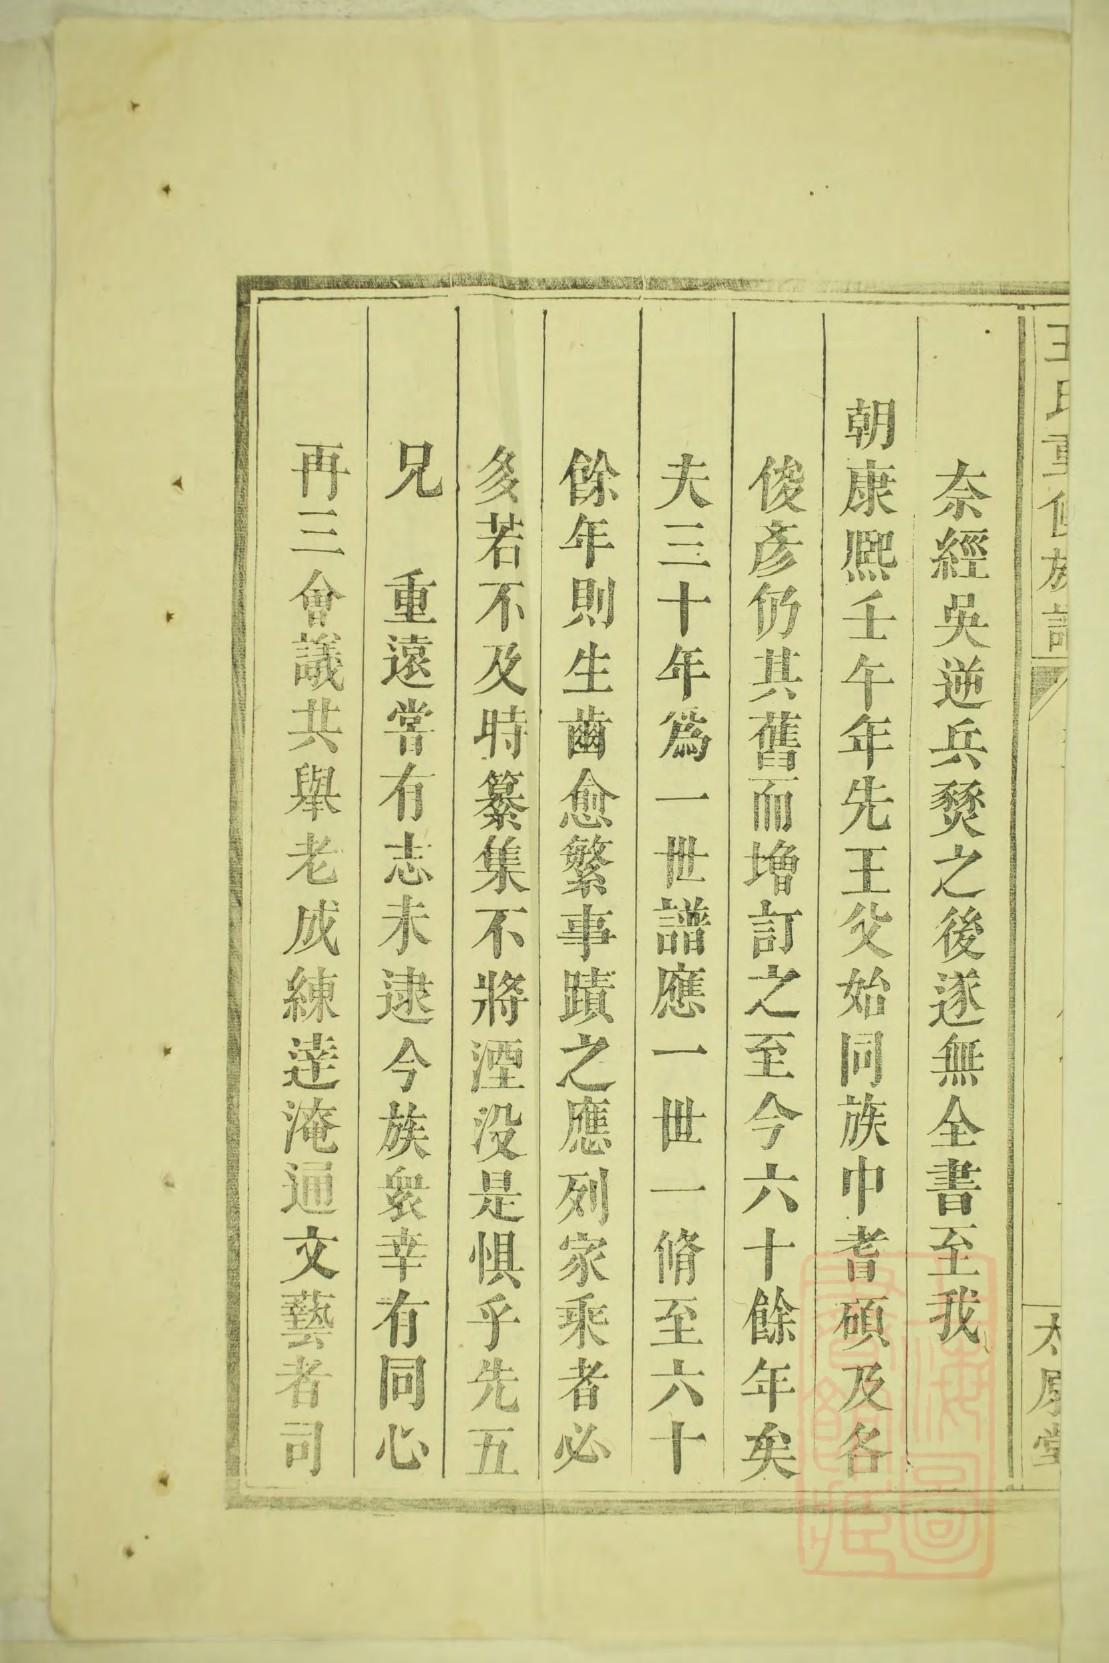 王氏重修族譜
太原堂
奈經吳逆兵燹之後遂無全書至我
朝康熙壬午年先王父始同族中耆碩及各
俊彥仍其舊而增訂之至今六十餘年矣
夫三十年為一世譜應一世一脩至六十
餘年則生齒愈繁事蹟之應列家乘者必
多若不及時纂集不將湮沒是惧乎先五
兄　重遠嘗有志未逮今族衆幸有同心
再三會議共舉老成練達淹通文藝者司
上海圖書館藏